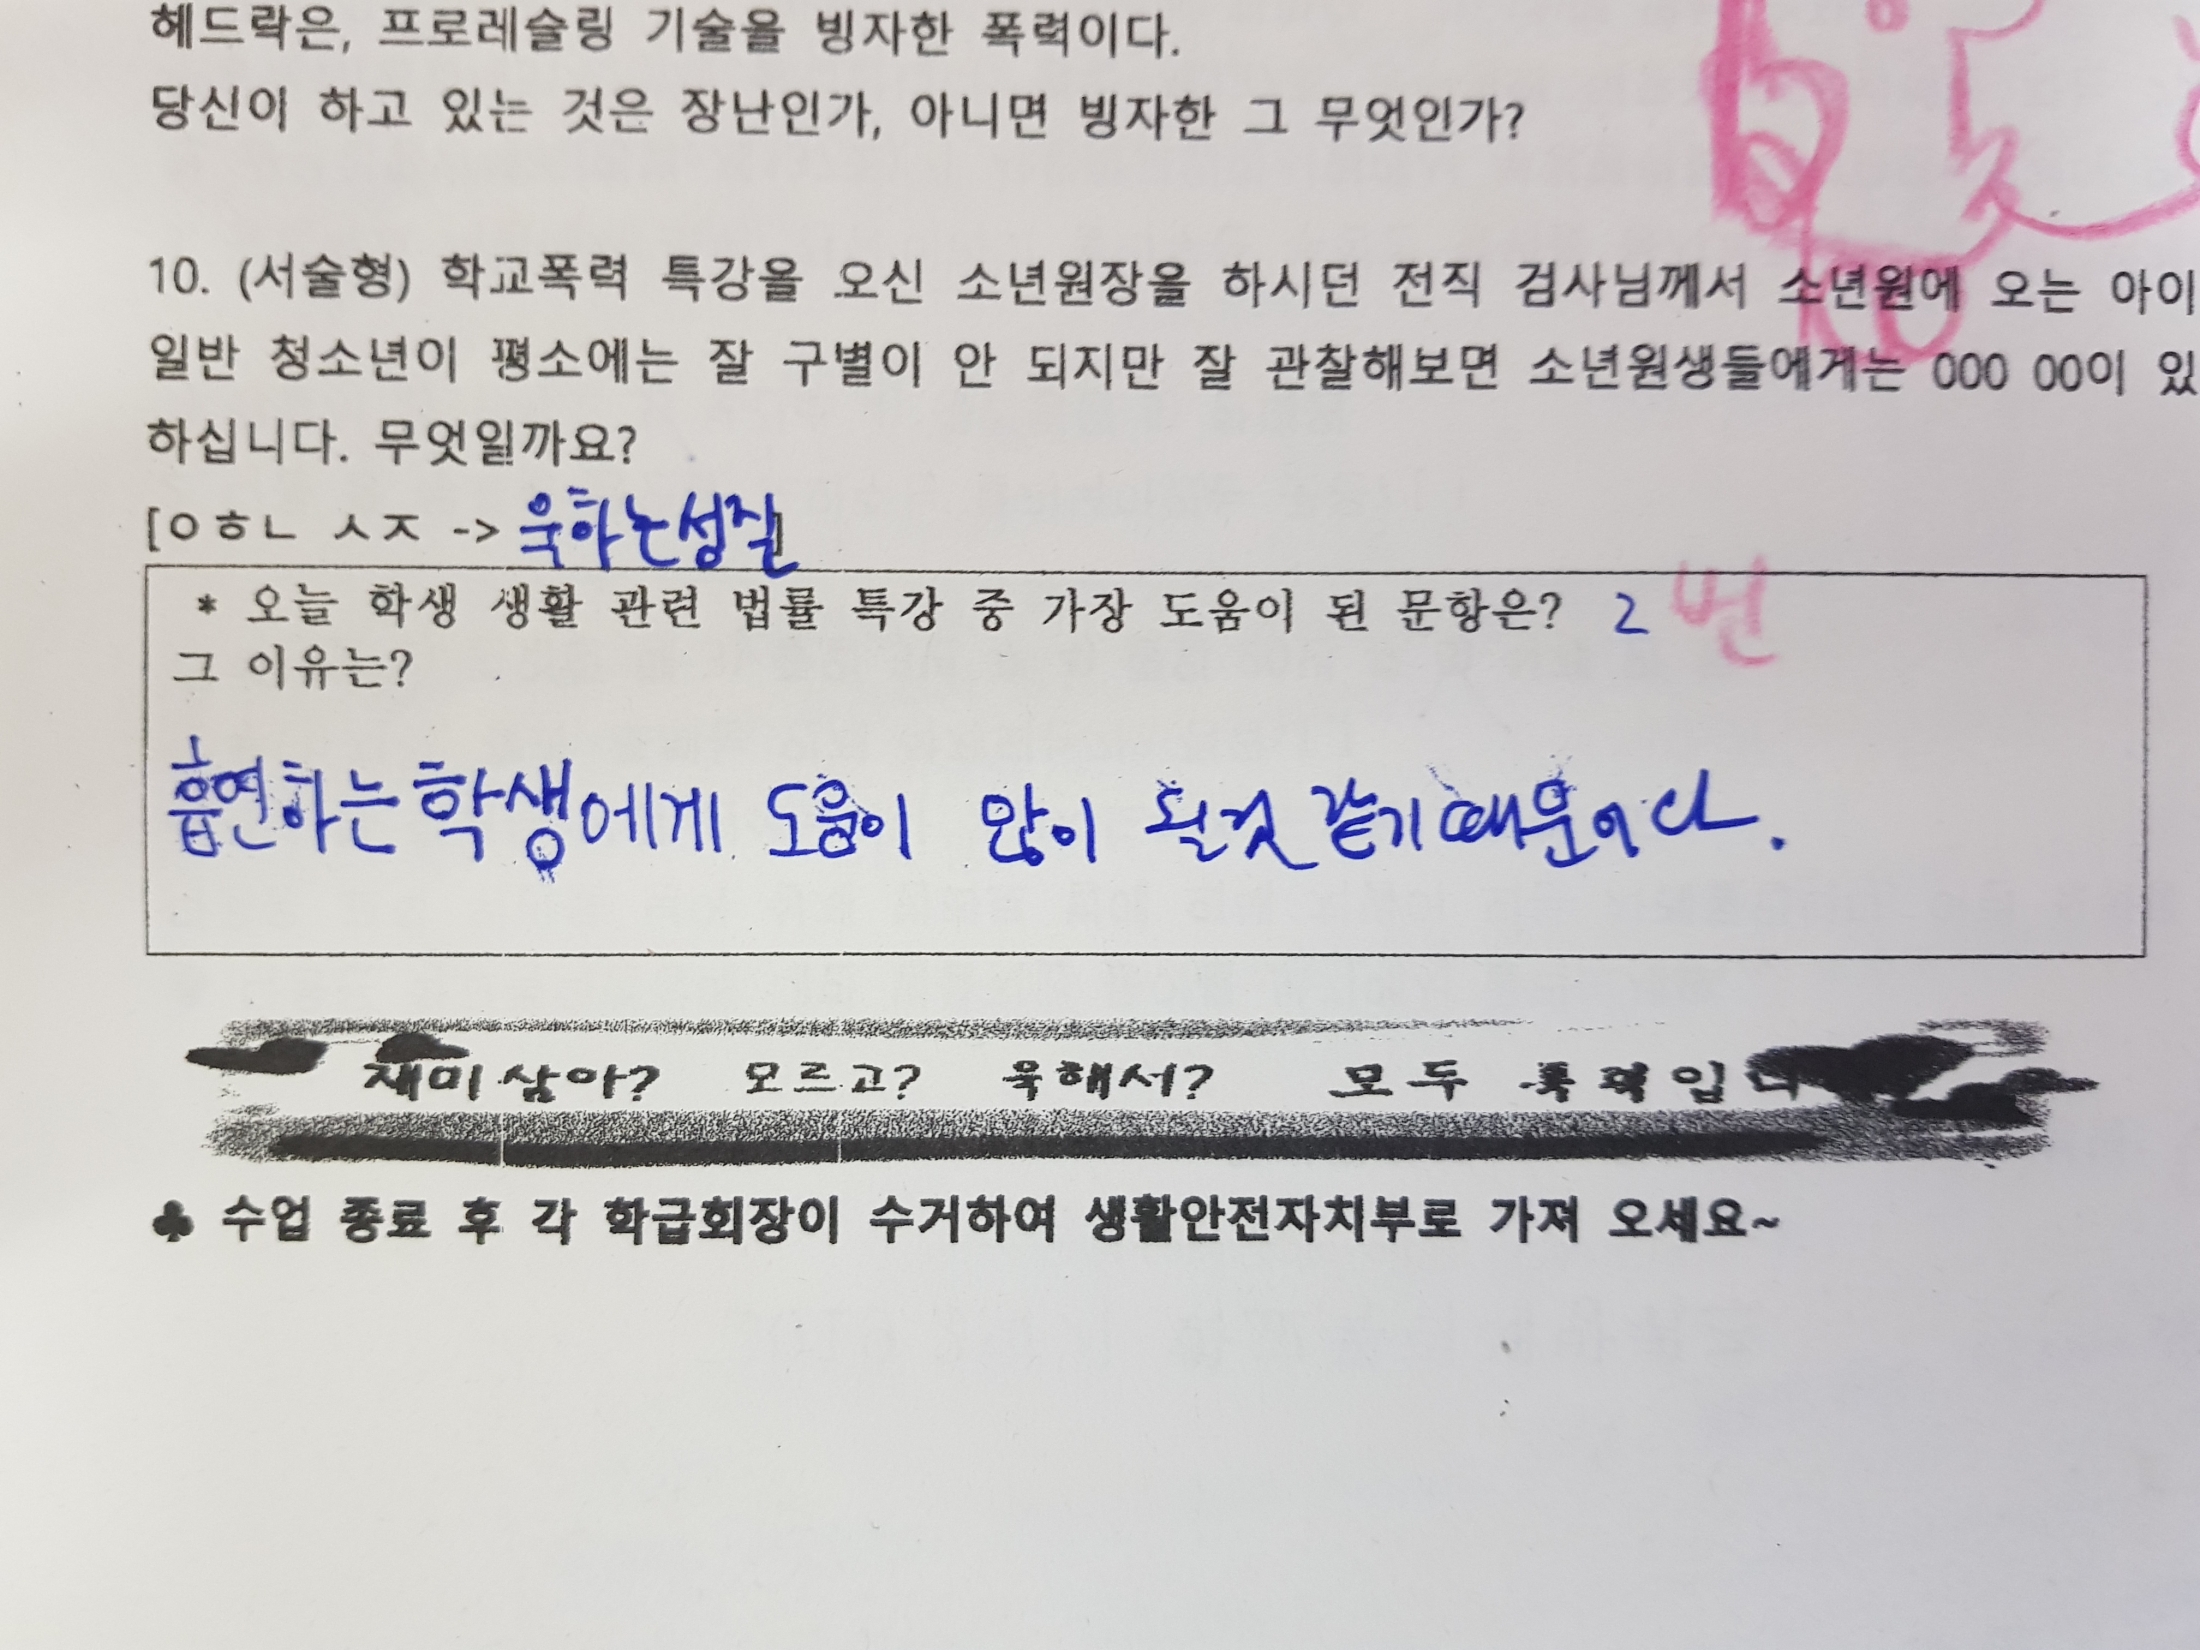 헤드락은, 프로레슬링 기술을 빙자한 폭력이다.
당신이 하고 있는 것은 장난인가, 아니면 빙자한 그 무엇인가?
10. (서술형) 학교폭력 특강을 오신 소년원장을 하시던 전직 검사님께서 소년원에 오는 아이
일반 청소년이 평소에는 잘 구별이 안 되지만 잘 관찰해보면 소년원생들에게는 OOO OO이 있
하십니다. 무엇일까요?
[ㅇㅎㄴ ㅅㅈ -> 욱하는성질]
* 오늘 학생 생활 관련 법률 특강 중 가장 도움이 된 문항은? 2 번
그 이유는?
흡연하는학생에게 도움이 많이 될것 같기때문이다.
재미삼아? 모르고? 욱해서? 모두 폭력입니
♣ 수업 종료 후 각 학급회장이 수거하여 생활안전자치부로 가져 오세요~